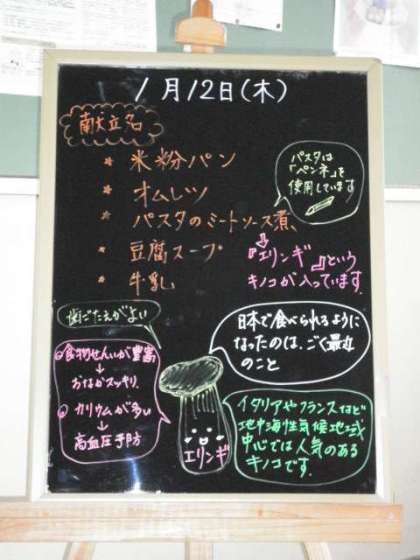 1月12日(木)
献立名
* 米粉パン
* オムレツ
* パスタのミートソース煮
* 豆腐スープ
* 牛乳
パスタは
「ペンネ」を
使用しています
↓
『エリンギ』という
キノコが入っています。
歯ごたえがよい
食物せんいが豊富
↓
おなかスッキリ
カリウムが多い
↓
高血圧予防
日本で食べられるように
なったのは、ごく最近
のこと
エリンギ
イタリアやフランスなど
地中海性気候地域
中心では人気のある
キノコです。